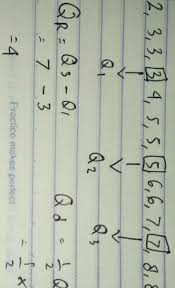 2, 3, 3, 3, 4, 5, 5, 5, 6, 6, 7, 7, 8, 8
Q₁ Q₂ Q₃
Q_R = Q₃ - Q₁
= 7 - 3
= 4
Q_d = 1/2 Q
= 1/2 x
Practice makes perfect